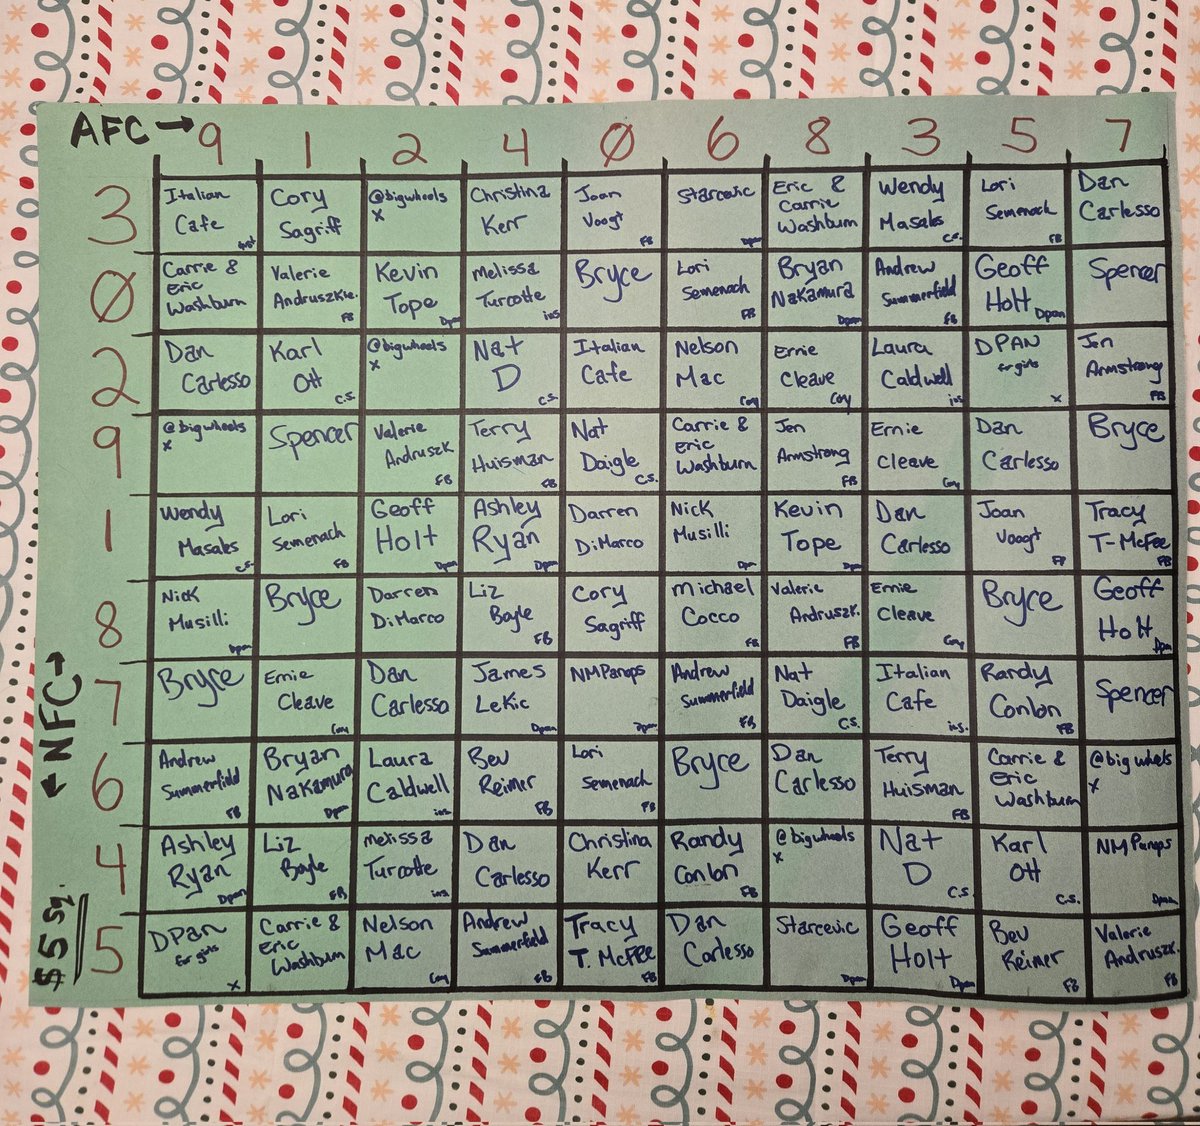 AFC → 9 1 2 4 0 6 8 3 5 7
3 Italian Cafe Cory Sagriff @bigwheels x Christina Kerr Joan Voogt FB Starcevic Dpan Eric & Carrie Washburn Wendy Masales C.S. Lori Semenach FB Dan Carlesso
0 Carrie & Eric Washburn Valerie Andruszkie. FB Kevin Tope Dpan Melissa Turcotte ins Bryce Lori Semenach FB Bryan Nakamura Dpan Andrew Summerfield FB Geoff Holt Dpan Spencer
2 Dan Carlesso Karl Ott C.S. @bigwheels x Nat D C.S. Italian Cafe Nelson Mac Coy Ernie Cleave Coy Laura Caldwell ins DPAN for girls x Jen Armstrong FB
9 @bigwheels x Spencer Valerie Andruszk FB Terry Huisman FB Nat Daigle C.S. Carrie & Eric Washburn Jen Armstrong FB Ernie Cleave Coy Dan Carlesso Bryce
1 Wendy Masales C.S. Lori Semenach FB Geoff Holt Dpan Ashley Ryan Dpan Darren DiMarco Nick Musilli Dpan Kevin Tope Dpan Dan Carlesso Joan Voogt FB Tracy T-McFee FB
8 Nick Musilli Dpan Bryce Darren DiMarco Liz Bayle FB Cory Sagriff Michael Cocco FB Valerie Andruszk. FB Ernie Cleave Coy Bryce Geoff Holt Dpan
7 Bryce Ernie Cleave Coy Dan Carlesso James Lekic Dpan NMPanops Dpan Andrew Summerfield FB Nat Daigle C.S. Italian Cafe ins. Randy Conlon FB Spencer
← NFC →
6 Andrew Summerfield FB Bryan Nakamura Dpan Laura Caldwell ins Bev Reimer FB Lori Semenach FB Bryce Dan Carlesso Terry Huisman FB Carrie & Eric Washburn @bigwheels x
4 Ashley Ryan Dpan Liz Bayle FB Melissa Turcotte ins Dan Carlesso Christina Kerr Randy Conlon FB @bigwheels x Nat D C.S. Karl Ott C.S. NMPanops Dpan
5 DPan for girls x Carrie & Eric Washburn Nelson Mac Coy Andrew Summerfield FB Tracy T. McFee FB Dan Carlesso Starcevic Dpan Geoff Holt Dpan Bev Reimer FB Valerie Andruszk. FB
$5 Sq.